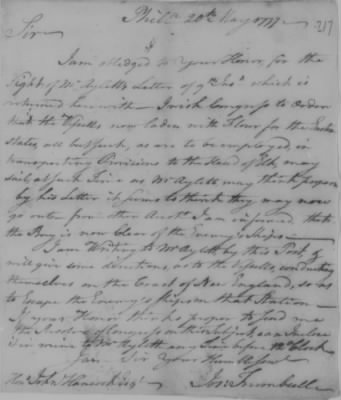 Phila 20th May 1777
217
Sir
I am obliged to your Honor, for the
Sight of Mr Aylett's Letter of 9th Inst which is
returned herewith - I wish Congress to Order
that the Vessells now laden with Flour for the Eastern
States, all but such, as are to be employed, in
transporting Provisions to the Head of Elk may
sail at such Time as Mr Aylett may think proper
by his Letter it seems to think they may now
go out, from other Accots I am informed that
the Bay is now Clear of the Enemy's Ships -
I am Writing to Mr Aylett, by this Post, &
will give some directions, as to the Vessells, conducting
themselves on the Coast of New England, so as
to Escape the Enemy's Ships on that Station -
If your Honor thinks proper to send me
the Resolve of Congress on this Subject, can Inclose
it in mine to Mr Aylett any Time before 12 oClock
I am Sir Your Hum
Honl John Hancock Esqr
Jos: Trumbull